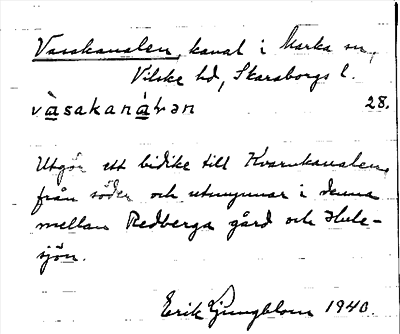 Vasakanalen, kanal i Marka sn,
Vilske hd, Skaraborgs l.
vàsakanáƚən 28.
Utgör ett bidike till Kvarnkanalen
från söder och utmynnar i denna
mellan Redberga gård och Hule-
sjön.
Erik Ljungblom 1940.